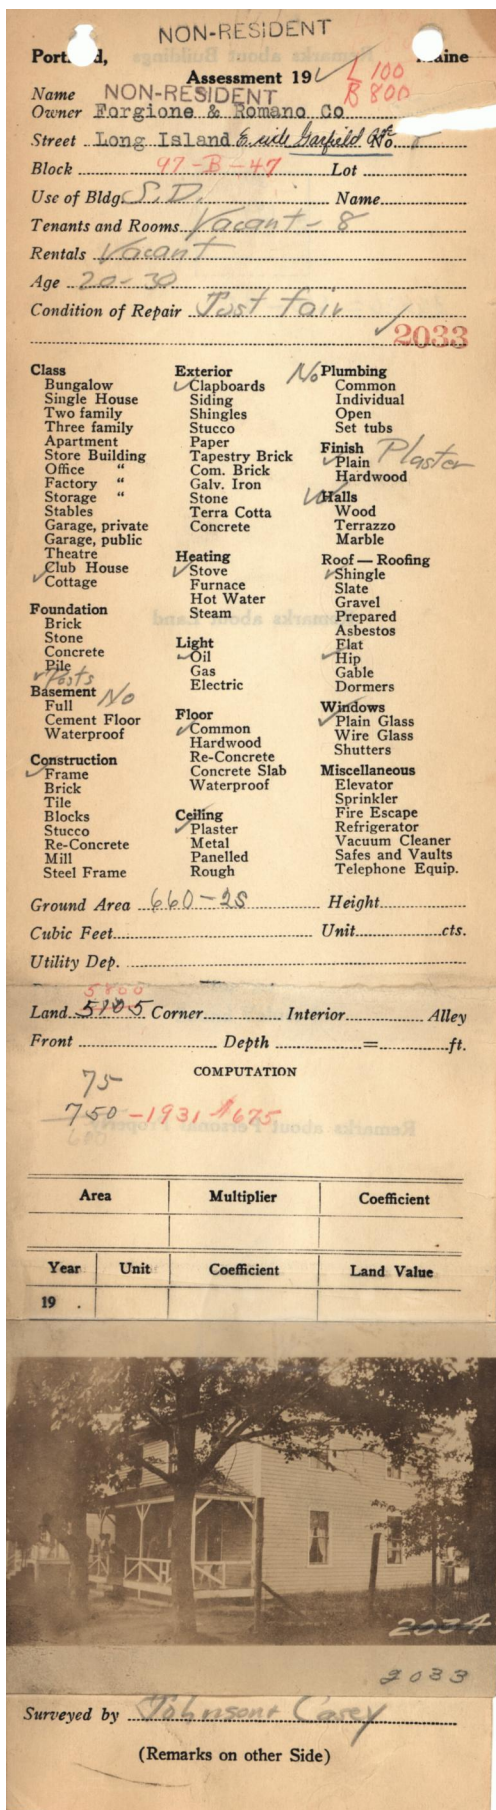 NON-RESIDENT
Portland, Maine
Assessment 19 L 100
Name NON-RESIDENT B 800
Owner Forgione & Romano Co
Street Long Island E. side Garfield No.
Block 97-B-47 Lot
Use of Bldg. S.D. Name
Tenants and Rooms Vacant - 8
Rentals Vacant
Age 20-30
Condition of Repair Just fair
2033
Class
Bungalow
Single House
Two family
Three family
Apartment
Store Building
Office "
Factory "
Storage "
Stables
Garage, private
Garage, public
Theatre
Club House
Cottage
Foundation
Brick
Stone
Concrete
Pile
Posts
Basement No
Full
Cement Floor
Waterproof
Construction
Frame
Brick
Tile
Blocks
Stucco
Re-Concrete
Mill
Steel Frame
Exterior
Clapboards
Siding
Shingles
Stucco
Paper
Tapestry Brick
Com. Brick
Galv. Iron
Stone
Terra Cotta
Concrete
Heating
Stove
Furnace
Hot Water
Steam
Light
Oil
Gas
Electric
Floor
Common
Hardwood
Re-Concrete
Concrete Slab
Waterproof
Ceiling
Plaster
Metal
Panelled
Rough
No Plumbing
Common
Individual
Open
Set tubs
Finish
Plain Plaster
Hardwood
Halls
Wood
Terrazzo
Marble
Roof — Roofing
Shingle
Slate
Gravel
Prepared
Asbestos
Flat
Hip
Gable
Dormers
Windows
Plain Glass
Wire Glass
Shutters
Miscellaneous
Elevator
Sprinkler
Fire Escape
Refrigerator
Vacuum Cleaner
Safes and Vaults
Telephone Equip.
Ground Area 660-2S Height
Cubic Feet Unit cts.
Utility Dep.
5800
Land 5805 Corner Interior Alley
Front Depth = ft.
COMPUTATION
75
750 -1931 $675
Area Multiplier Coefficient
Year Unit Coefficient Land Value
19 .
2034
2033
Surveyed by Johnson & Casey
(Remarks on other Side)